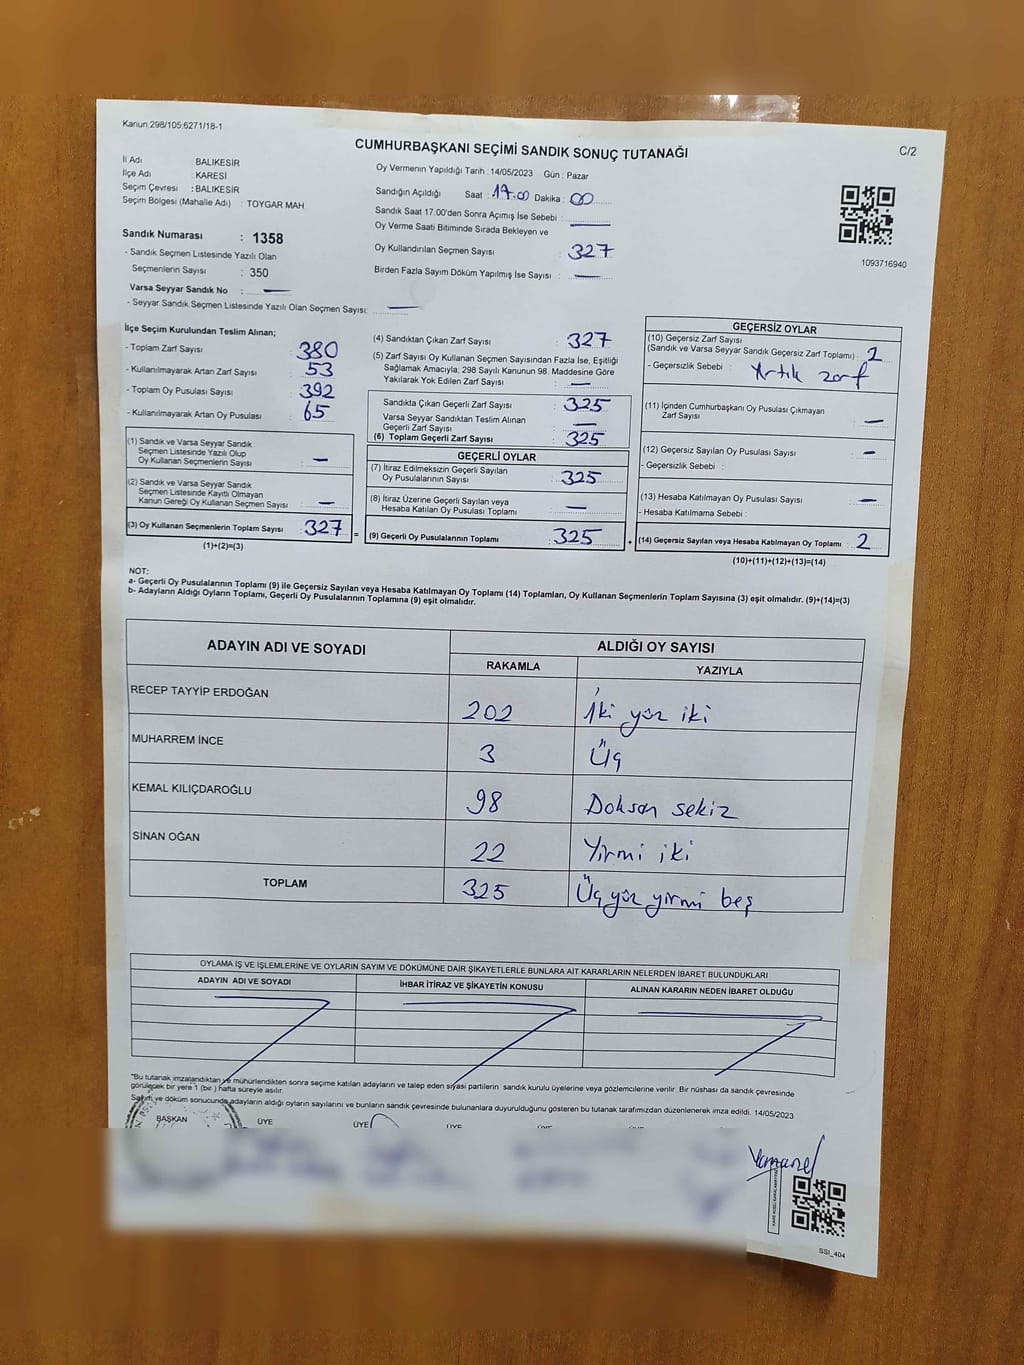 Kanun:298/105;6271/18-1
C/2
CUMHURBAŞKANI SEÇİMİ SANDIK SONUÇ TUTANAĞI
İl Adı : BALIKESİR
İlçe Adı : KARESİ
Seçim Çevresi : BALIKESİR
Seçim Bölgesi (Mahalle Adı) : TOYGAR MAH
Oy Vermenin Yapıldığı Tarih : 14/05/2023 Gün : Pazar
Sandığın Açıldığı Saat : 17.00 Dakika : 00
Sandık Saat 17.00'den Sonra Açımış İse Sebebi :
Oy Verme Saati Bitiminde Sırada Bekleyen ve
Oy Kullandırılan Seçmen Sayısı : 327
Birden Fazla Sayım Döküm Yapılmış İse Sayısı : —
1093716940
Sandık Numarası : 1358
- Sandık Seçmen Listesinde Yazılı Olan
Seçmenlerin Sayısı : 350
Varsa Seyyar Sandık No : —
- Seyyar Sandık Seçmen Listesinde Yazılı Olan Seçmen Sayısı: —
İlçe Seçim Kurulundan Teslim Alınan;
- Toplam Zarf Sayısı : 380
- Kullanılmayarak Artan Zarf Sayısı : 53
- Toplam Oy Pusulası Sayısı : 392
- Kullanılmayarak Artan Oy Pusulası : 65
(1) Sandık ve Varsa Seyyar Sandık
Seçmen Listesinde Yazılı Olup
Oy Kullanan Seçmenlerin Sayısı : —
(2) Sandık ve Varsa Seyyar Sandık
Seçmen Listesinde Kayıtlı Olmayan
Kanun Gereği Oy Kullanan Seçmen Sayısı : —
(3) Oy Kullanan Seçmenlerin Toplam Sayısı : 327
(1)+(2)=(3)
(4) Sandıktan Çıkan Zarf Sayısı : 327
(5) Zarf Sayısı Oy Kullanan Seçmen Sayısından Fazla İse, Eşitliği
Sağlamak Amacıyla; 298 Sayılı Kanunun 98. Maddesine Göre
Yakılarak Yok Edilen Zarf Sayısı : —
Sandıkta Çıkan Geçerli Zarf Sayısı : 325
Varsa Seyyar Sandıktan Teslim Alınan
Geçerli Zarf Sayısı : —
(6) Toplam Geçerli Zarf Sayısı : 325
GEÇERLİ OYLAR
(7) İtiraz Edilmeksizin Geçerli Sayılan
Oy Pusulalarının Sayısı : 325
(8) İtiraz Üzerine Geçerli Sayılan veya
Hesaba Katılan Oy Pusulası Toplamı : —
= (9) Geçerli Oy Pusulalarının Toplamı : 325 +
GEÇERSİZ OYLAR
(10) Geçersiz Zarf Sayısı
(Sandık ve Varsa Seyyar Sandık Geçersiz Zarf Toplamı) : 2
- Geçersizlik Sebebi : Artık zarf
(11) İçinden Cumhurbaşkanı Oy Pusulası Çıkmayan
Zarf Sayısı : —
(12) Geçersiz Sayılan Oy Pusulası Sayısı : —
- Geçersizlik Sebebi :
(13) Hesaba Katılmayan Oy Pusulası Sayısı : —
- Hesaba Katılmama Sebebi :
(14) Geçersiz Sayılan veya Hesaba Katılmayan Oy Toplamı : 2
(10)+(11)+(12)+(13)=(14)
NOT:
a- Geçerli Oy Pusulalarının Toplamı (9) ile Geçersiz Sayılan veya Hesaba Katılmayan Oy Toplamı (14) Toplamları, Oy Kullanan Seçmenlerin Toplam Sayısına (3) eşit olmalıdır. (9)+(14)=(3)
b- Adayların Aldığı Oyların Toplamı, Geçerli Oy Pusulalarının Toplamına (9) eşit olmalıdır.
ADAYIN ADI VE SOYADI ALDIĞI OY SAYISI
RAKAMLA YAZIYLA
RECEP TAYYİP ERDOĞAN 202 İki yüz iki
MUHARREM İNCE 3 Üç
KEMAL KILIÇDAROĞLU 98 Doksan sekiz
SİNAN OĞAN 22 Yirmi iki
TOPLAM 325 Üç yüz yirmi beş
OYLAMA İŞ VE İŞLEMLERİNE VE OYLARIN SAYIM VE DÖKÜMÜNE DAİR ŞİKAYETLERLE BUNLARA AİT KARARLARIN NELERDEN İBARET BULUNDUKLARI
ADAYIN ADI VE SOYADI İHBAR İTİRAZ VE ŞİKAYETİN KONUSU ALINAN KARARIN NEDEN İBARET OLDUĞU
"Bu tutanak imzalandıktan ve mühürlendikten sonra seçime katılan adayların ve talep eden siyasi partilerin sandık kurulu üyelerine veya gözlemcilerine verilir. Bir nüshası da sandık çevresinde
görülecek bir yere 1 (bir ) hafta süreyle asılır.
Sayım ve döküm sonucunda adayların aldığı oyların sayılarını ve bunların sandık çevresinde bulunanlara duyurulduğunu gösteren bu tutanak tarafımızdan düzenlenerek imza edildi. 14/05/2023
BAŞKAN ÜYE ÜYE ÜYE ÜYE
SSİ_404